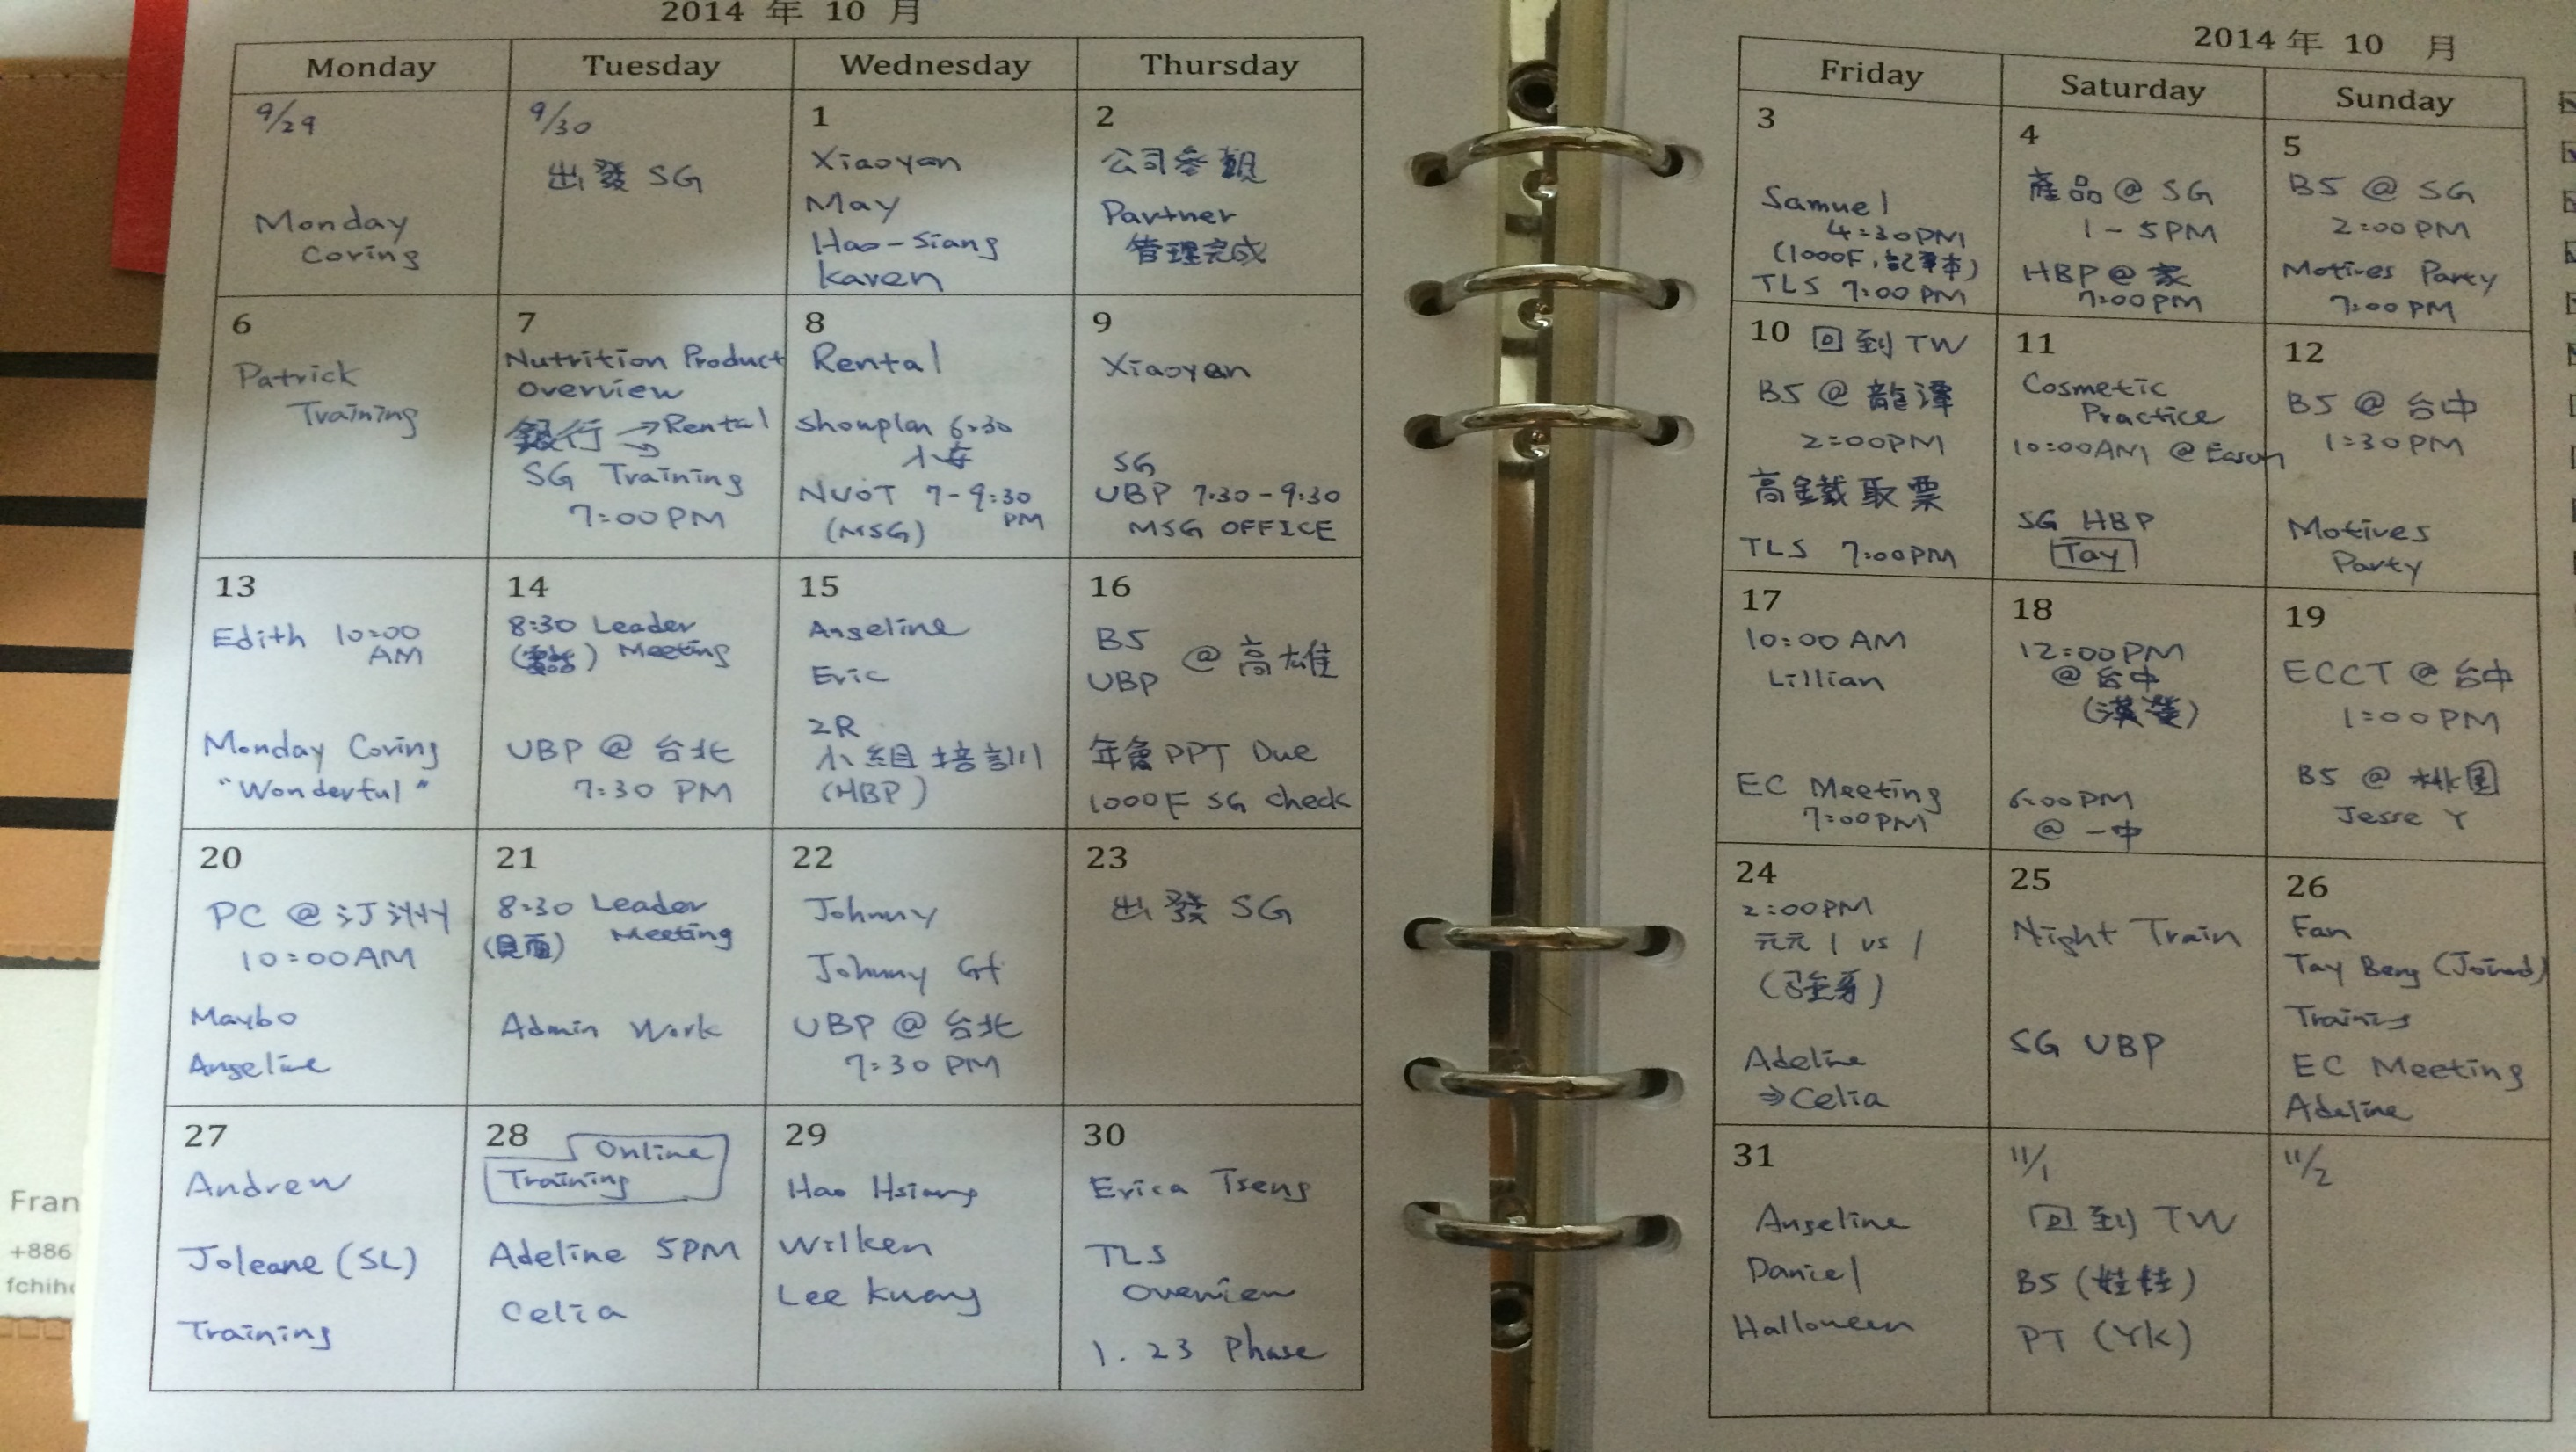 2014 年 10 月
Monday
Tuesday
Wednesday
Thursday
9/29
Monday
Coring
9/30
出發 SG
1
Xiaoyan
May
Hao-Siang
Karen
2
公司參觀
Partner
管理完成
6
Patrick
Training
7
Nutrition Product
Overview
銀行 → Rental
SG Training
7:00 PM
8
Rental
Showplan 6:30
NUOT 7-9:30
PM
(MSG)
9
Xiaoyan
SG
UBP 7:30-9:30
MSG OFFICE
13
Edith 10:00
AM
Monday Coring
"Wonderful"
14
8:30 Leader
(電話) Meeting
UBP @ 台北
7:30 PM
15
Angeline
Eric
2R
小組培訓
(HBP)
16
B5
UBP @ 高雄
年會 PPT Due
1000F SG check
20
PC @ 汀州
10:00 AM
Maybo
Angeline
21
8:30 Leader
(見面) Meeting
Admin Work
22
Johnny
Johnny Gf
UBP @ 台北
7:30 PM
23
出發 SG
27
Andrew
Joleane (SL)
Training
28
Online
Training
Adeline 5PM
Celia
29
Hao Hsiang
Wilken
Lee Kuang
30
Erica Tseng
TLS
Overview
1.23 Phase
2014 年 10 月
Friday
Saturday
Sunday
3
Samuel
4:30PM
(1000F, 記事本)
TLS 7:00 PM
4
產品 @ SG
1-5PM
HBP @ 家
7:00PM
5
B5 @ SG
2:00 PM
Motives Party
7:00 PM
10 回到 TW
B5 @ 龍潭
2:00PM
高鐵取票
TLS 7:00PM
11
Cosmetic
Practice
10:00AM @ Eason
SG HBP
Tay
12
B5 @ 台中
1:30 PM
Motives
Party
17
10:00 AM
Lillian
EC Meeting
7:00PM
18
12:00PM
@ 台中
6:00PM
@ 一中
19
ECCT @ 台中
1:00 PM
B5 @ 桃園
Jesse Y
24
2:00PM
元元 1 vs 1
Adeline
⇒ Celia
25
Night Train
SG UBP
26
Fan
Tay Beng (Joined)
Training
EC Meeting
Adeline
31
Angeline
Daniel
Halloween
11/1
回到 TW
B5 (娃娃)
PT (YK)
11/2
Fran
+886
fchih